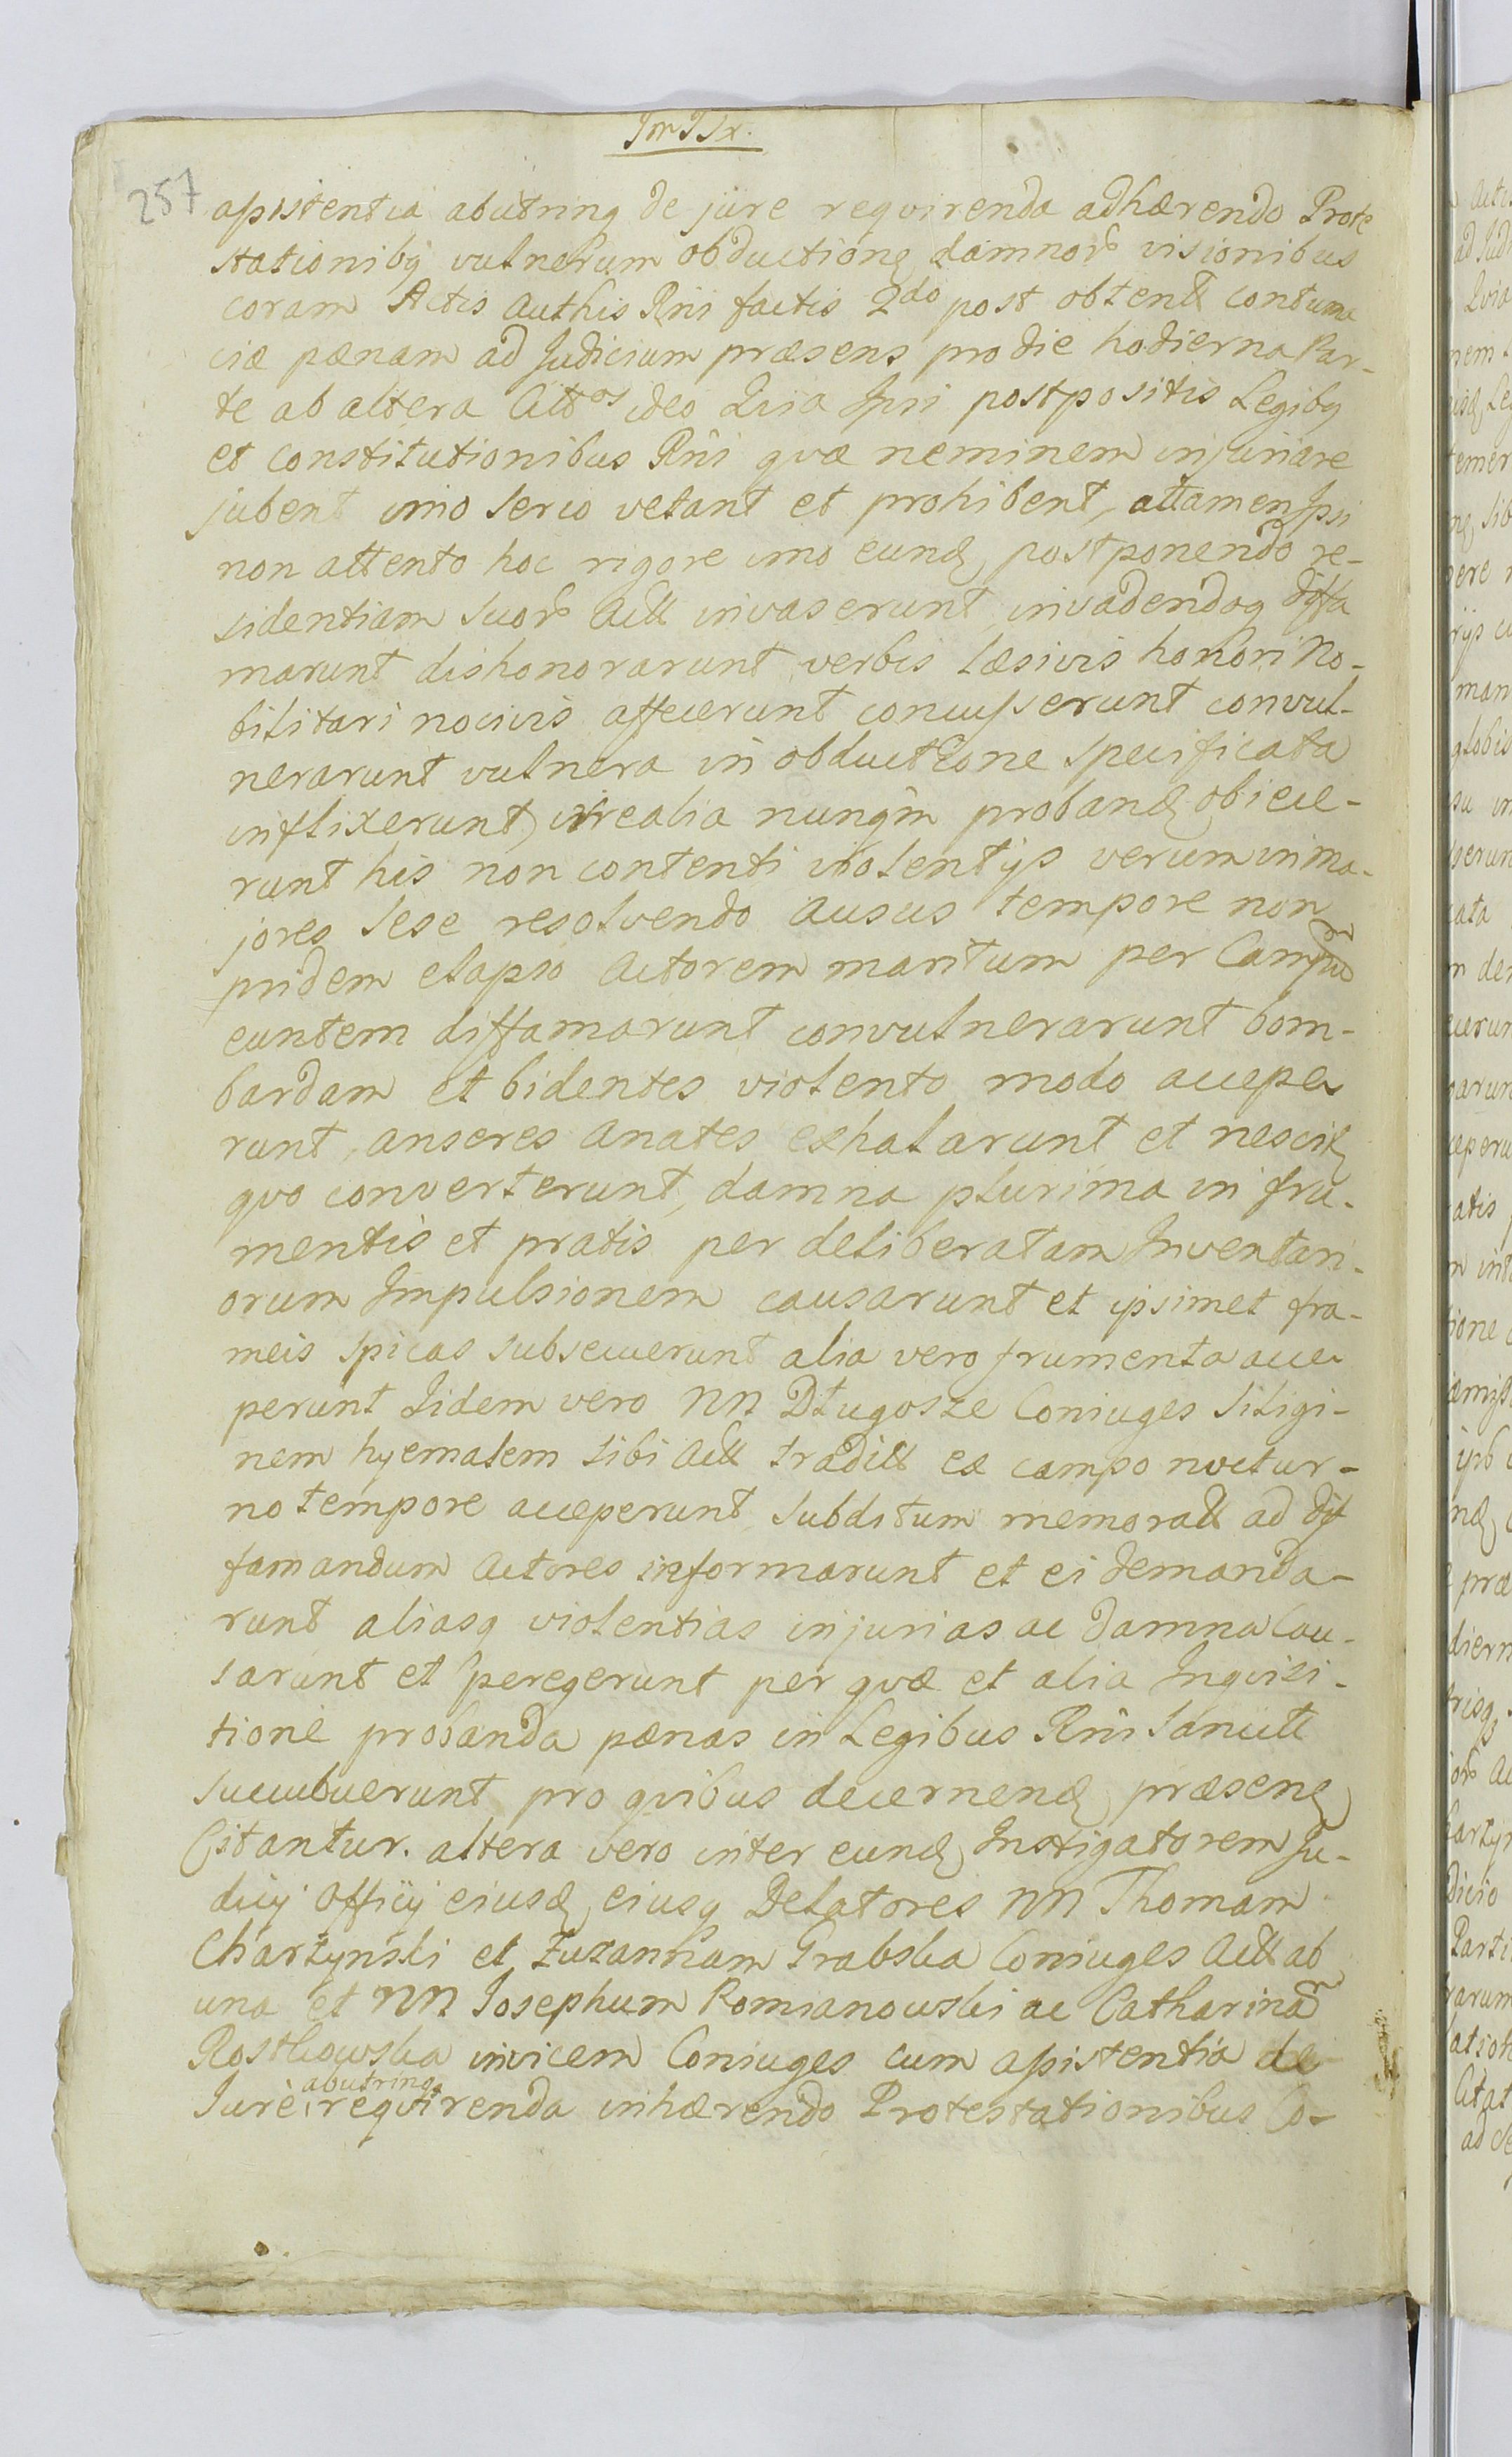 257
assistentia abutrinq de jure reqvirenda adhærendo Prote
stationibq vulnerum obductioneq damnorb visionibus
coram Actis Authis Rni factis 2do post obtentt contuma
ciæ pænam ad Judicium præsens pro die hodierna Par-
te ab altera Cittos ideo Qvia Ipsi postpositis Legibq
et Constitutionibus Rni qvæ neminem injuriare
jubent imo serio vetant et prohibent, attamen Ipsi
non attento hoc rigore imo eund postponendo re-
sidentiam Suorb Actt invaserunt invadendoq diffa
marunt dishonorarunt verbis læsivis honori No-
bilitari nocivis affecerunt concusserunt convul-
nerarunt vulnera in obductione specificata
inflixerunt, irrealia nunqm proband obiece-
runt his non contenti violentijs verum in ma-
jores sese resolvendo ausus tempore non
pridem elapso Actorem maritum per Campu
euntem diffamarunt convulnerarunt bom-
bardam et bidentes violento modo accepe
runt, anseres anates exhalarunt et nescit
qvo converterunt, damna plurima in fru-
mentis et pratis per deliberatam Inventari-
orum Impulsionem causarunt et ipsimet fra-
meis spicas subsecuerunt alia vero frumenta acce
perunt Iidem vero NN Długosze Coniuges siligi-
nem hyemalem sibi Actt traditt ex campo noctur-
no tempore acceperunt subditum memoratt ad dif
famandum Actores informarunt et ei demanda-
runt aliasq violentias injurias ac damna Cau-
sarunt et peregerunt per qvæ et alia Inqvisi-
tione probanda pænas in Legibus Rni sancitt
succubuerunt pro qvibus decernend præsend
Citantur. altera vero inter eund Instigatorem Ju-
dicij Officij eiusd eiusq Delatores NN Thomam
Charzynski et Zuzannam Grabska Coniuges Actt ab
una et NN Josephum Romianowski ac Catharina
Rostkowska invicem Coniuges cum assistentia de
Jure abutrinq reqvirenda inhærendo Protestationibus Co-